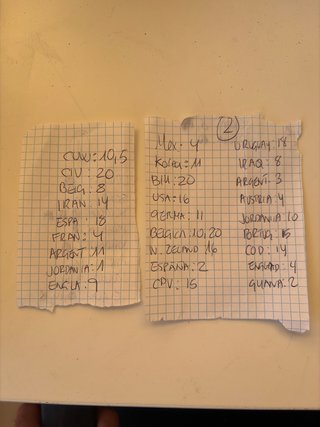 CUW: 10,5
CIV: 20
BELG: 8
IRAN: 14
ESPA: 18
FRAN: 4
ARGENT: 11
JORDANIA: 1
ENGLA: 9
2
MEX: 4
KOREA: 11
BIH: 20
USA: 16
GERMA: 11
BELGICA: 10,20
N. ZELAND: 16
ESPAÑA: 2
CPV: 15
URUGUAY: 18
IRAQ: 8
ARGENT: 3
AUSTRIA: 4
JORDANIA: 10
PORTUG: 15
COD: 14
ENGLAD: 4
GHANA: 2